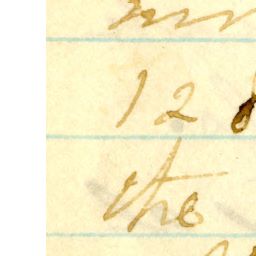 12
the